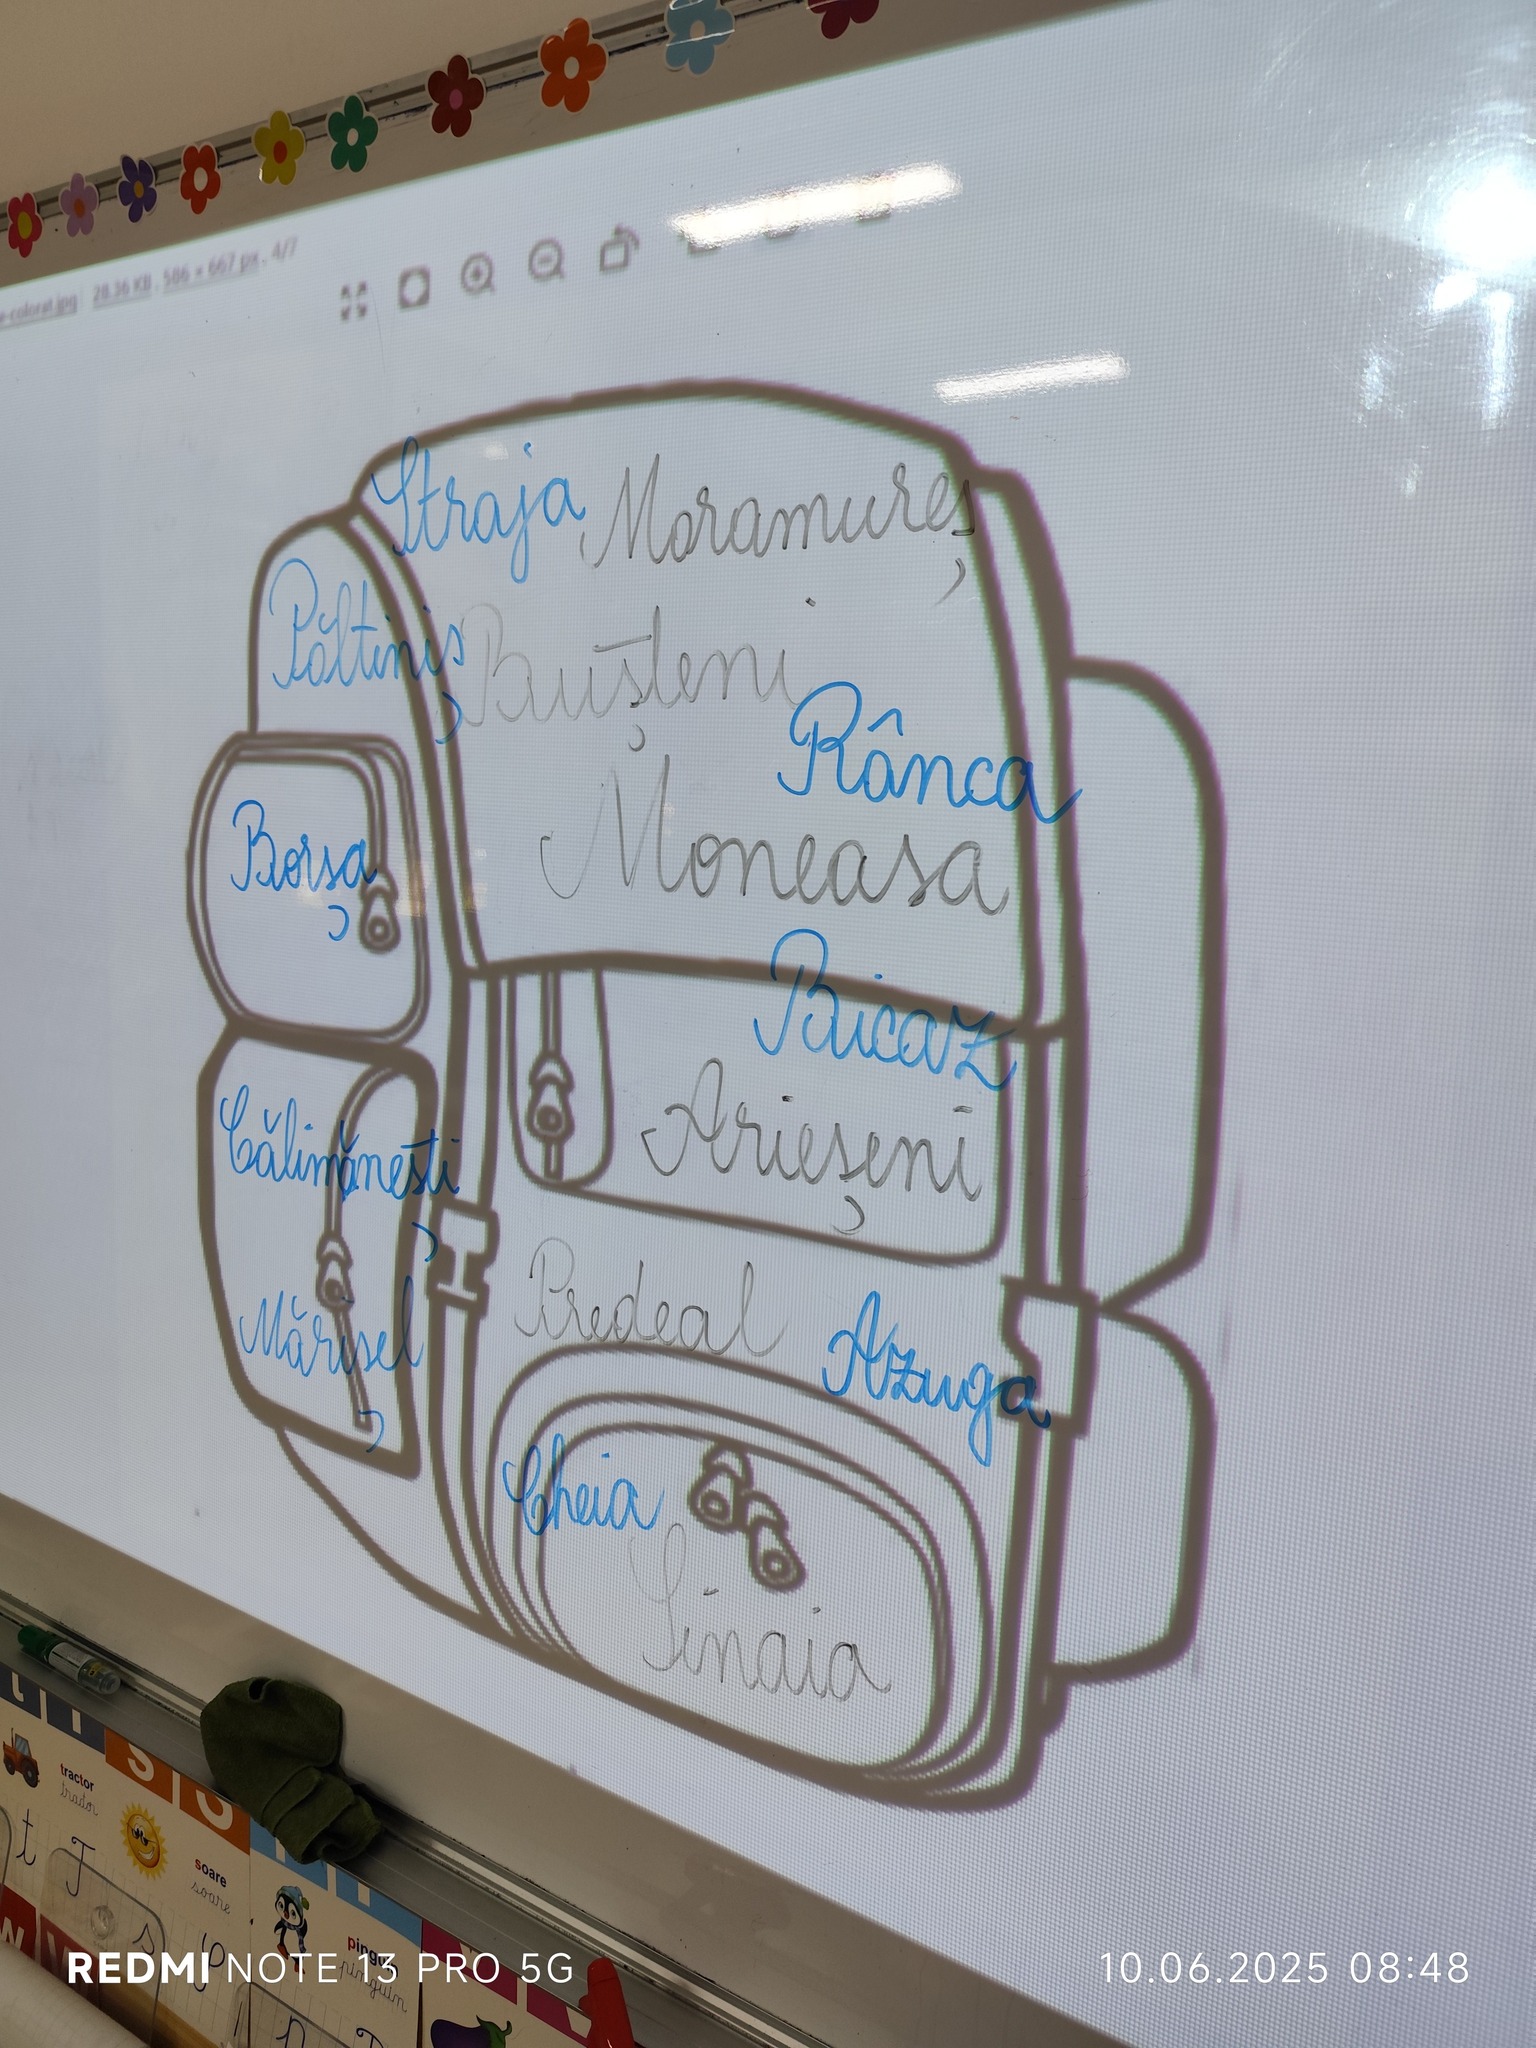 -colorat.jpg 28.36 KB, 586 × 667 px, 4/7
Straja Moramureș
Păltiniș Bușteni
Rânca
Borșa Moneasa
Bicaz
Călimănești Arieșeni
Predeal
Mărișel Azuga
Cheia
Sinaia
tractor
tractor
soare
soare
pinguin
pinguin
REDMI NOTE 13 PRO 5G
10.06.2025 08:48